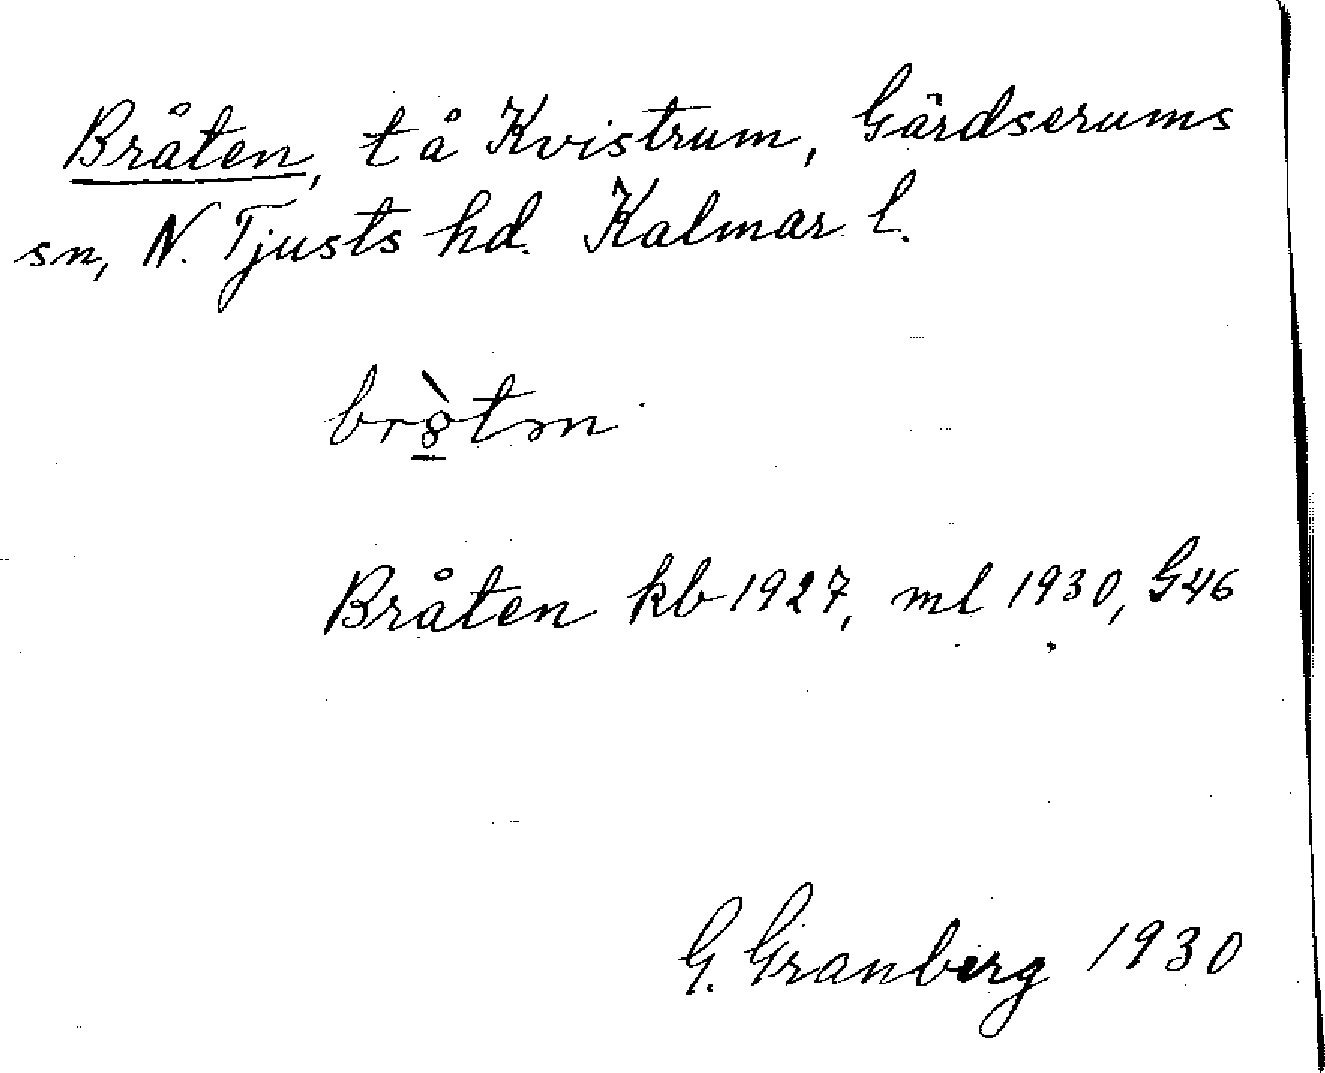 Bråten, t å Kvistrum, Gärdserums
sn, N. Tjusts hd. Kalmar l.
Bråten kb 1927, ml 1930, G46
G. Granberg 1930